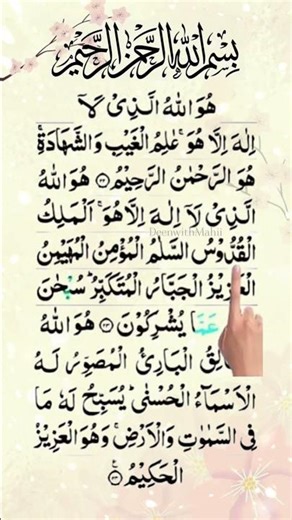 بِسْمِ اللهِ الرَّحْمٰنِ الرَّحِيْمِ
هُوَ اللهُ الَّذِيْ لَآ
اِلٰهَ اِلَّا هُوَ ۚ عٰلِمُ الْغَيْبِ وَالشَّهَادَةِ ۚ
هُوَ الرَّحْمٰنُ الرَّحِيْمُ ۝٢٢ هُوَ اللهُ
الَّذِيْ لَآ اِلٰهَ اِلَّا هُوَ ۚ اَلْمَلِكُ
DeenwithMahii
الْقُدُّوْسُ السَّلٰمُ الْمُؤْمِنُ الْمُهَيْمِنُ
الْعَزِيْزُ الْجَبَّارُ الْمُتَكَبِّرُ ؕ سُبْحٰنَ
عَمَّا يُشْرِكُوْنَ ۝٢٣ هُوَ اللهُ
الْبَارِئُ الْمُصَوِّرُ لَهُ
الْاَسْمَآءُ الْحُسْنٰى ؕ يُسَبِّحُ لَهٗ مَا
فِى السَّمٰوٰتِ وَالْاَرْضِ ۚ وَهُوَ الْعَزِيْزُ
الْحَكِيْمُ ۝٢٤